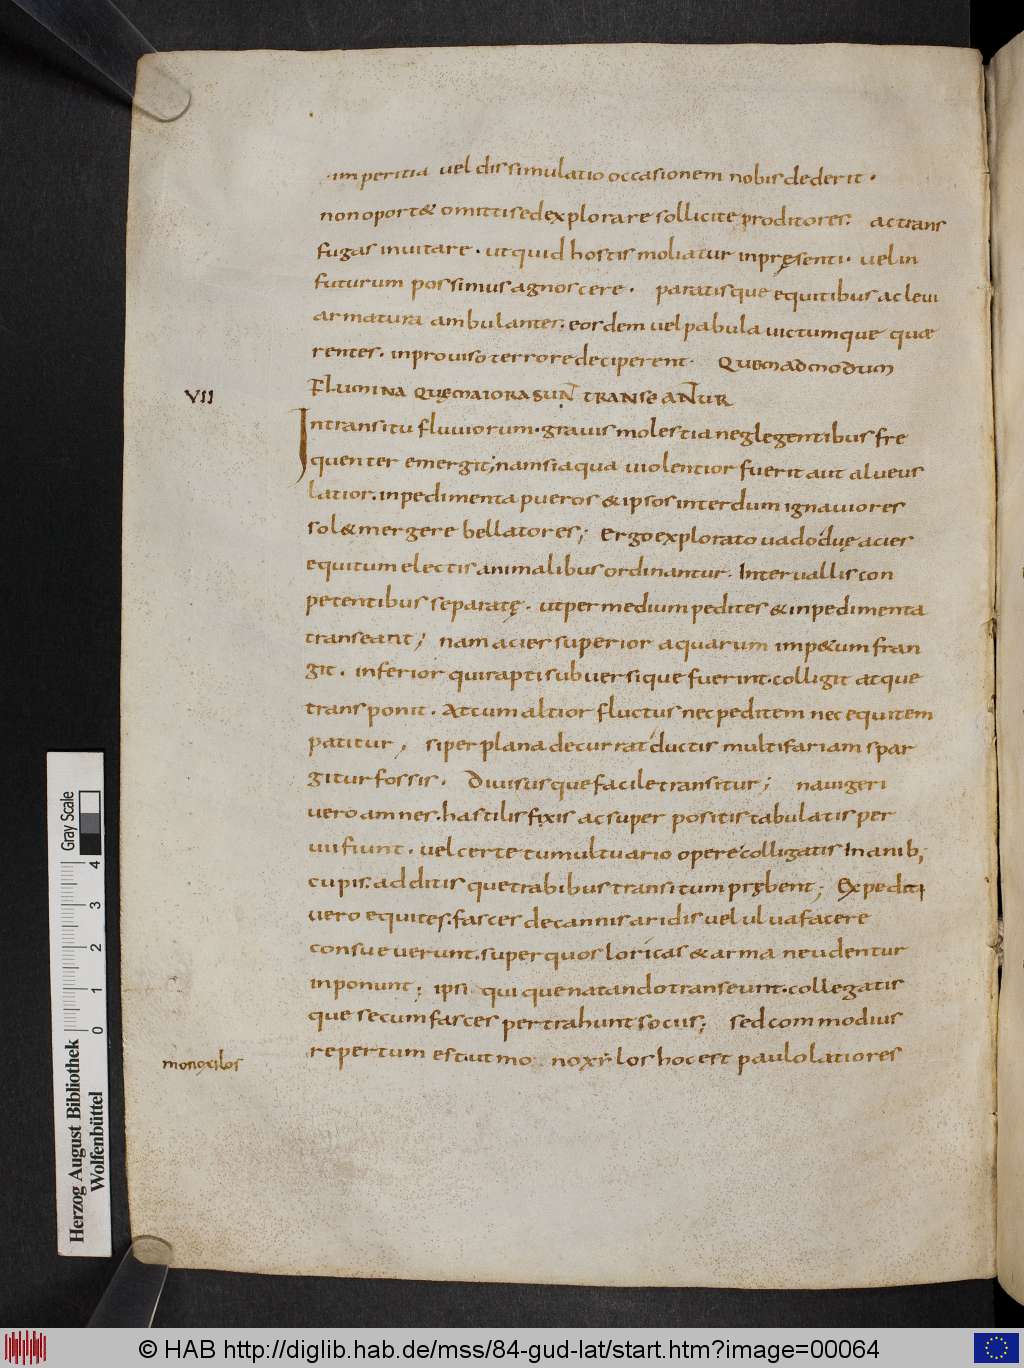 imperitia vel dissimulatio occasionem nobis dederit.
non oport& omitti sed explorare sollicite proditores. ac trans
fugas invitare. ut quid hostis moliatur in pręsenti. vel in
futurum possimus agnoscere. paratisque equitibus ac levi
armatura ambulantes. eosdem vel pabula victumque quæ
rentes. inproviso terrore deciperent. Quemadmodum
VII
Flumina quę maiora sunt transeantur
In transitu fluviorum. gravis molestia neglegentibus fre
quenter emergit; nam si aqua violentior fuerit aut alveus
latior. inpedimenta pueros & ipsos interdum ignaviores
sol& mergere bellatores; Ergo explorato vado duę acies
equitum electis animalibus ordinantur. Intervallis con
petentibus separatę. ut per medium pedites & inpedimenta
transeant; nam acies superior aquarum imp&um fran
git. inferior qui rapti subversique fuerint. colligit atque
transponit. At cum altior fluctus nec peditem nec equitem
patitur, si per plana decurrat ductis multifariam spar
gitur fossis. Divisusque facile transitur; navigeri
vero amnes. hastilis fixis ac super positis tabulatis per
vii fiunt. vel certe tumultuario opere colligatis Inanib;
cupis. additisque trabibus transitum prębent; Expediti
vero equites. fasces de cannis aridis vel ulva facere
consueverunt. super quos loricas & arma ne udentur
inponunt; ipsi qui que natando transeunt. collegatis
que secum fasces pertrahunt sociis; sed commodius
monoxilos
repertum est ut mo noxi los hoc est paulo latiores
Herzog August Bibliothek
Wolfenbüttel
0 1 2 3 4
Gray Scale
© HAB http://diglib.hab.de/mss/84-gud-lat/start.htm?image=00064